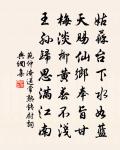 姑蘇台下水如藍
天賜仙鄉奉旨甘
梅淡柳黃春不淺
王孫歸思滿江南
范仲淹送常熟錢尉詞
典網集